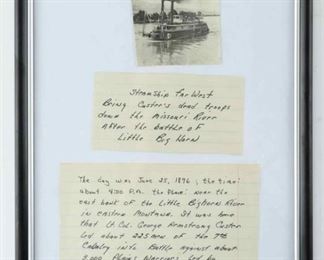 Steamship Far West
Bring Custer's dead troops
down the Missouri River
After the battle of
Little Big Horn
The day was June 25, 1876, the time:
about 4:30 P.M. the Place: near the
east bank of the Little Bighorn River
in eastern Montana. It was here
that Lt. Col. George Armstrong Custer
led about 225 men of the 7th
Cavalry into Battle against about
2,000 Plains Warriors led by